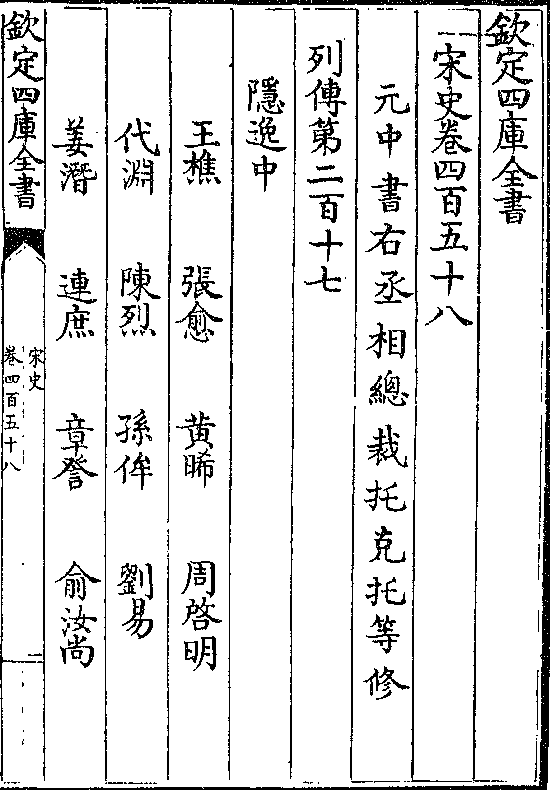 欽定四庫全書
宋史卷四百五十八
元中書右丞相總裁托克托等修
列傳第二百十七
隱逸中
王樵 張愈 黄晞 周啓明
代淵 陳烈 孫侔 劉易
姜潛 連庶 章詧 俞汝尚
欽定四庫全書
宋史
卷四百五十八
一